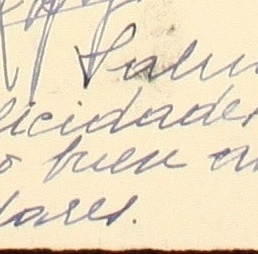 Salu
licidades
o buen a
dares.